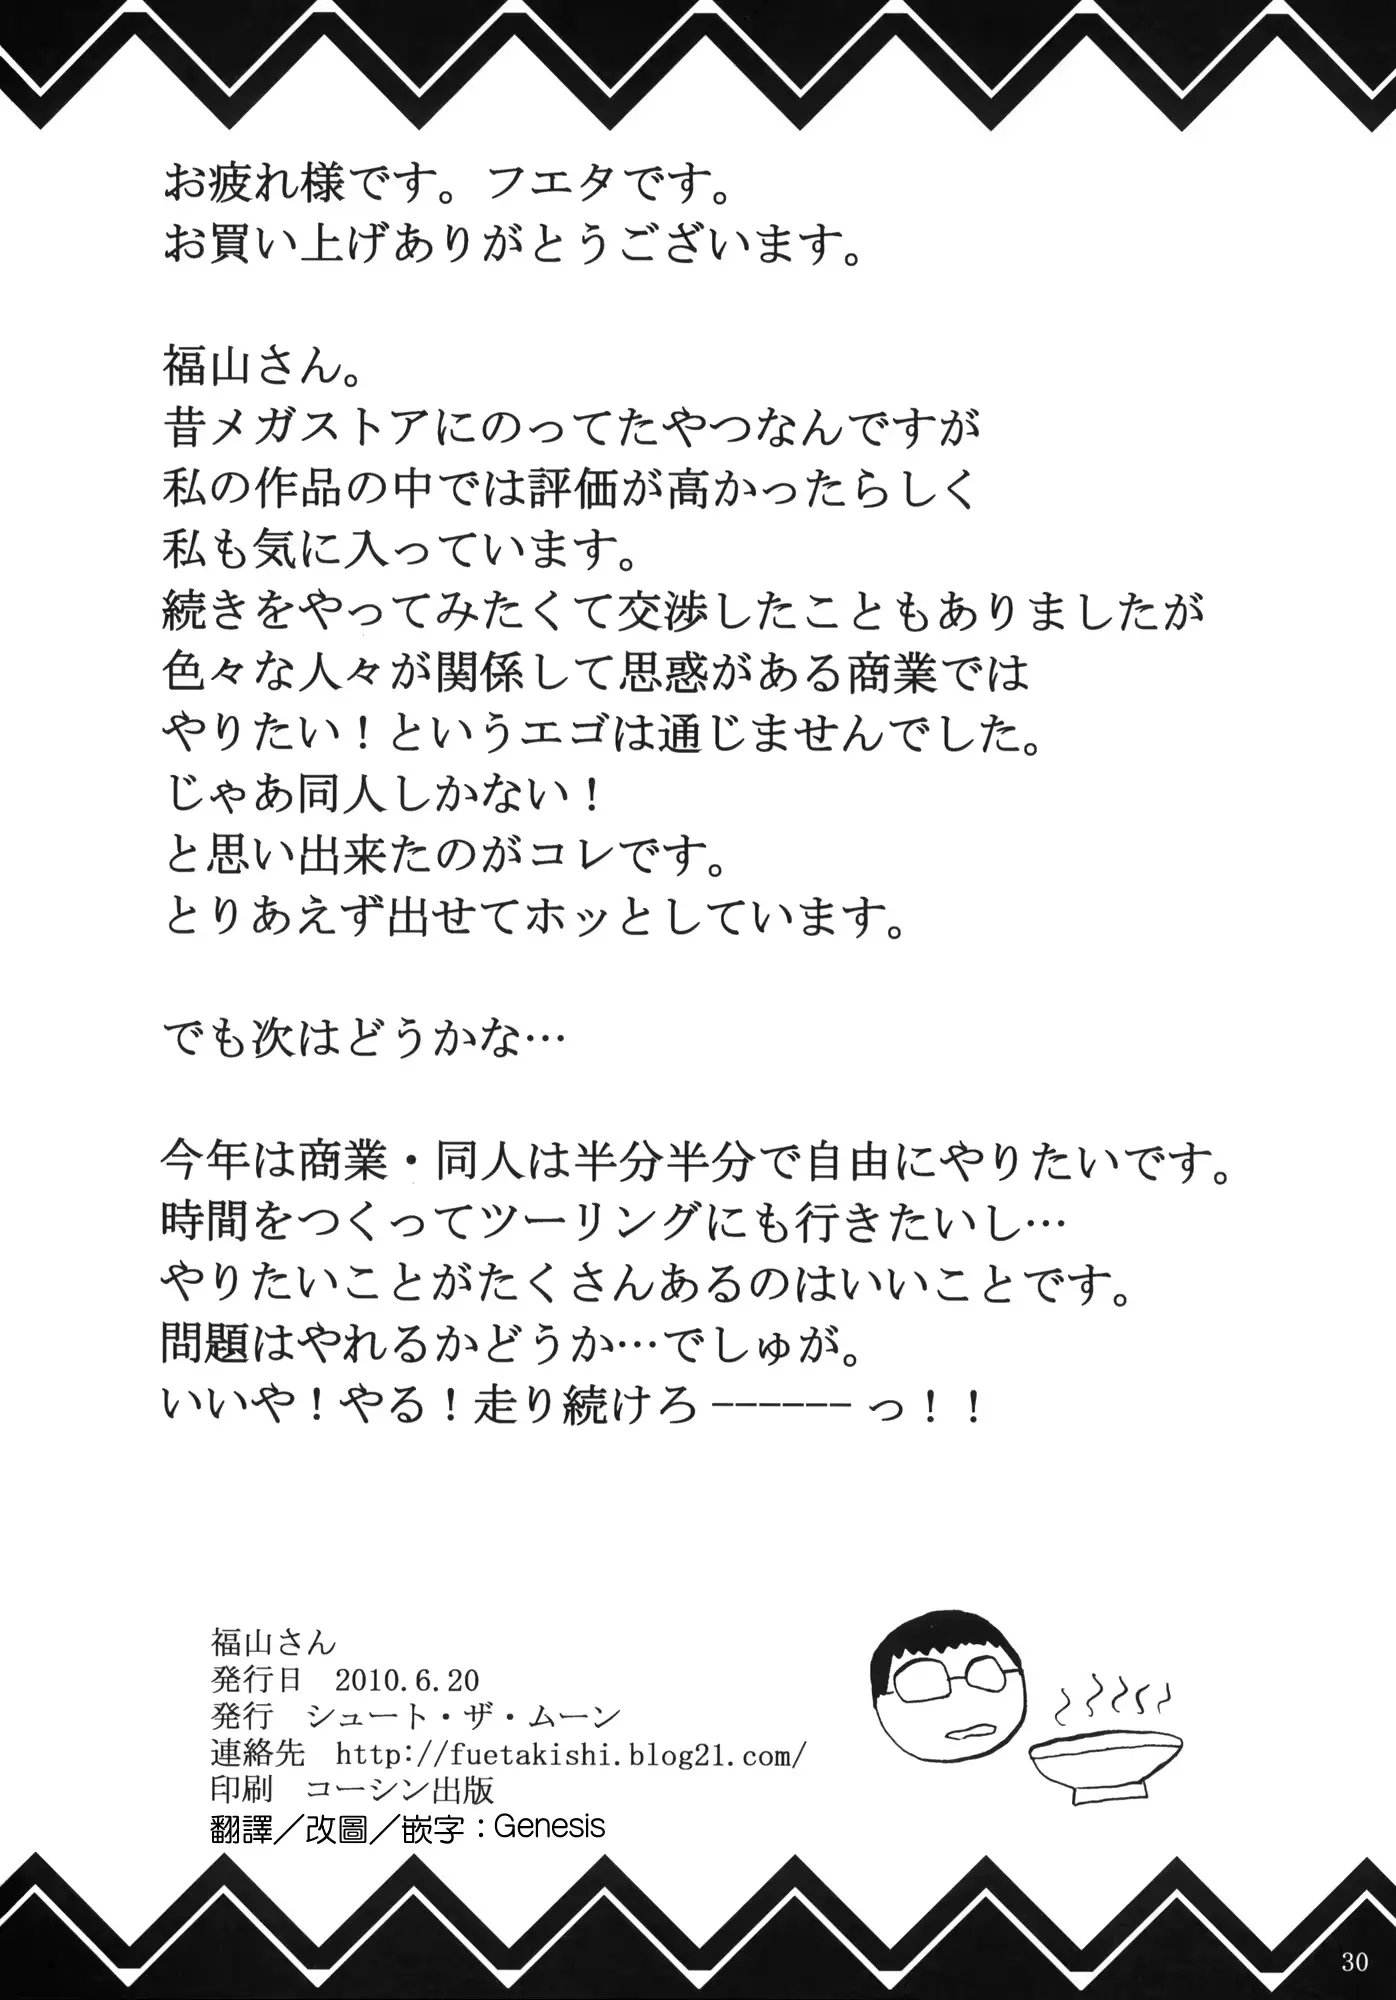 お疲れ様です。フエタです。
お買い上げありがとうございます。
福山さん。
昔メガストアにのってたやつなんですが
私の作品の中では評価が高かったらしく
私も気に入っています。
続きをやってみたくて交渉したこともありましたが
色々な人々が関係して思惑がある商業では
やりたい！というエゴは通じませんでした。
じゃあ同人しかない！
と思い出来たのがコレです。
とりあえず出せてホッとしています。
でも次はどうかな…
今年は商業・同人は半分半分で自由にやりたいです。
時間をつくってツーリングにも行きたいし…
やりたいことがたくさんあるのはいいことです。
問題はやれるかどうか…でしゅが。
いいや！やる！走り続けろ------っ！！
福山さん
発行日　2010.6.20
発行　シュート・ザ・ムーン
連絡先　http://fuetakishi.blog21.com/
印刷　コーシン出版
翻譯／改圖／嵌字：Genesis
30